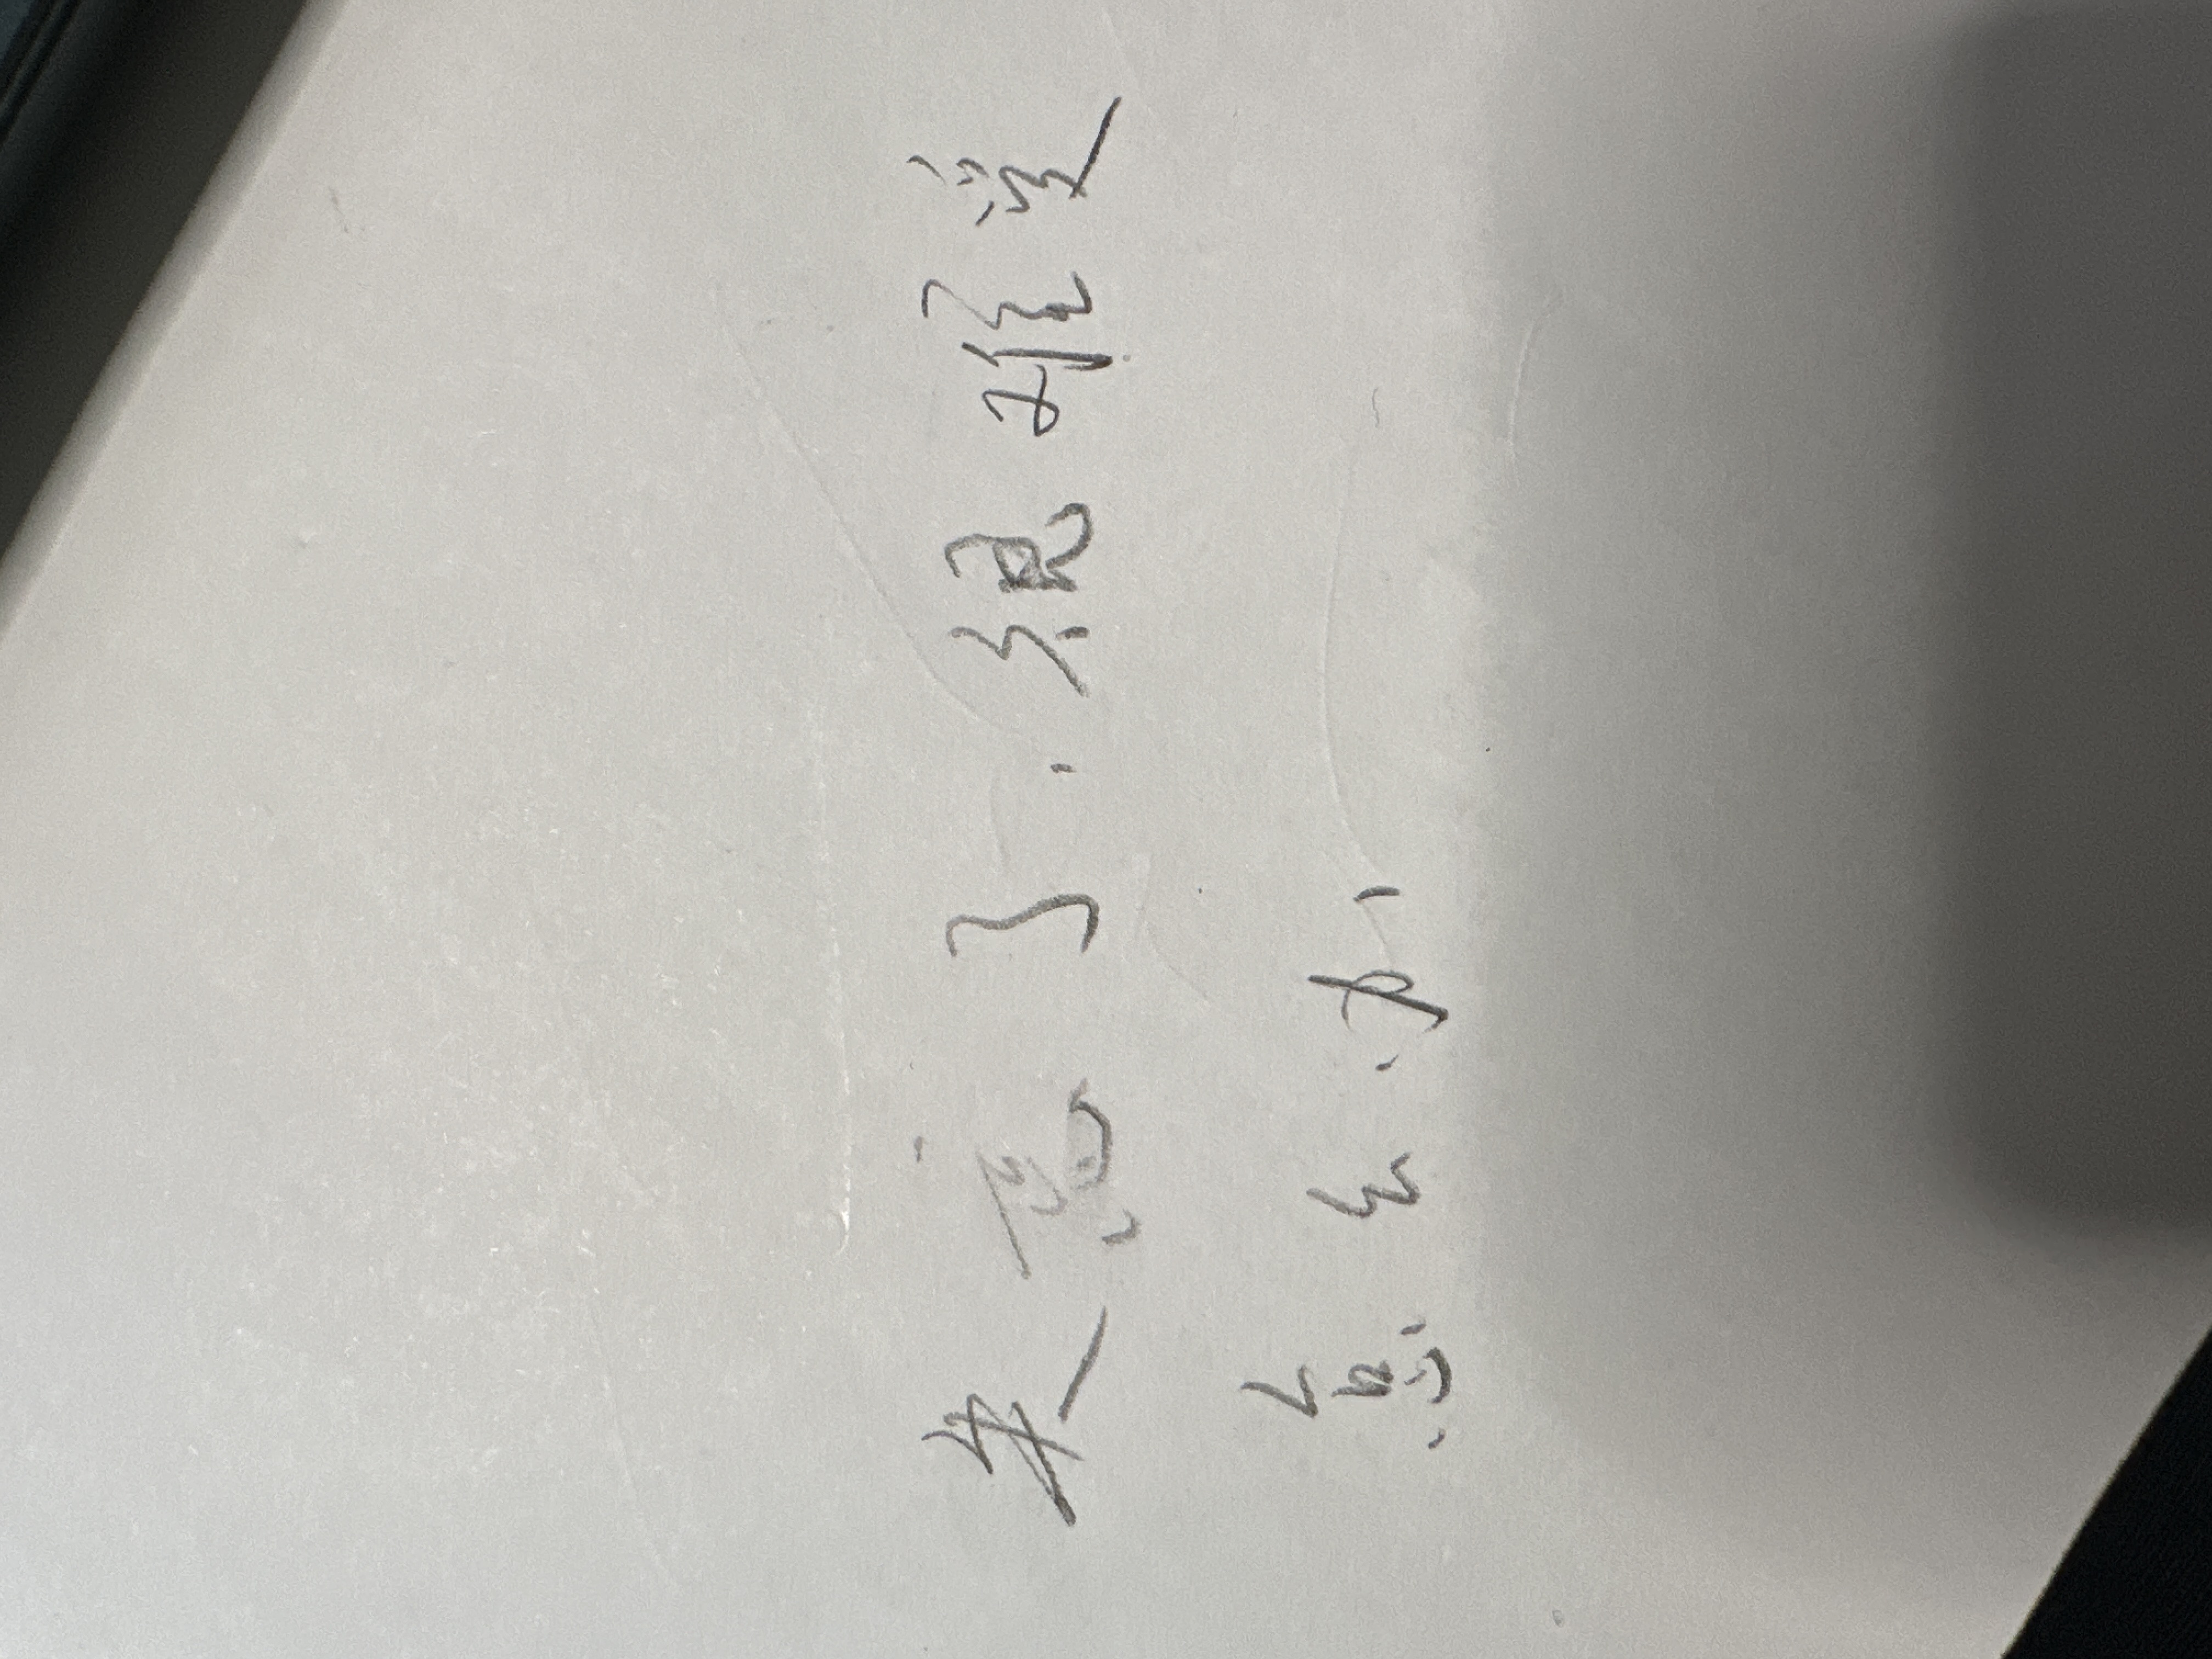 失恋了，很难受
怎么办